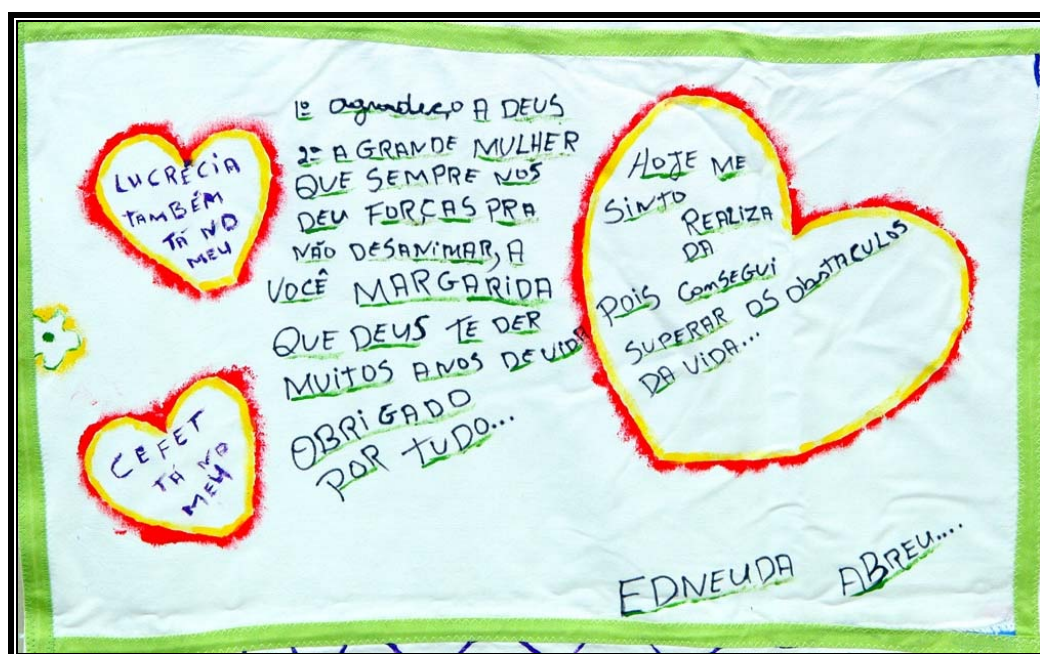 LUCRÉCIA
TAMBÉM
TÁ NO
MEU
CEFET
TÁ NO
MEU
1º agradeço A DEUS
2º A GRANDE MULHER
QUE SEMPRE NOS
DEU FORÇAS PRA
NÃO DESANIMAR, A
VOCÊ MARGARIDA
QUE DEUS TE DER
MUITOS ANOS DE VIDA
OBRIGADO
POR TUDO...
HOJE ME
SINTO
REALIZA
DA
POIS CONSEGUI
SUPERAR OS ObSTACULOS
DA VIDA...
EDNEUDA ABREU....